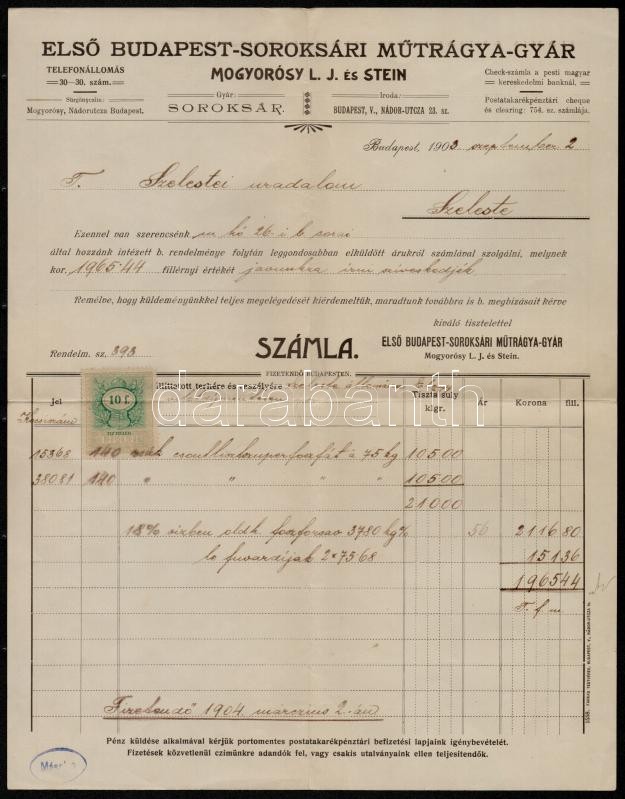 ELSŐ BUDAPEST-SOROKSÁRI MŰTRÁGYA-GYÁR
MOGYORÓSY L. J. ÉS STEIN
TELEFONÁLLOMÁS
30—30. szám.
Sürgönyczim:
Mogyorósy, Nádorutcza Budapest.
Gyár:
SOROKSÁR.
Iroda:
BUDAPEST, V., NÁDOR-UTCZA 23. sz.
Check-számla a pesti magyar
kereskedelmi banknál.
Postatakarékpénztári cheque
és clearing: 754. ez. számlája.
Budapest, 1903 szeptember 2
T. Szelestei uradalom
Szeleste
Ezennel van szerencsénk m hó 26. i b. sorai
által hozzánk intézett b. rendelménye folytán leggondosabban elküldött árukról számlával szolgálni, melynek
kor. 1965·44 fillérnyi értékét javunkra irni sziveskedjék
Remélve, hogy küldeményünkkel teljes megelégedését kiérdemeltük, maradtunk továbbra is b. megbízásait kérve
kiváló tisztelettel
ELSŐ BUDAPEST-SOROKSÁRI MŰTRÁGYA-GYÁR
Mogyorósy L. J. és Stein.
Rendelm. sz. 393
SZÁMLA.
FIZETENDŐ BUDAPESTEN.
terhére és veszélyére szeleste
Jel
Tiszta suly
klgr.
Ár
Korona
fill.
10 f.
15368 140 zsák csontlisztszuperfoszfát á 75 kg 10500
38081 140 " " " " 10500
21000
18% vizben oldh. foszforsav 3780 kg% 56 2116 80
le fuvardijak 2×75 68 151 36
1965 44
Fizetendő 1904. március 2-án
Pénz küldése alkalmával kérjük portomentes postatakarékpénztári befizetési lapjaink igénybevételét.
Fizetések közvetlenül czimünkre adandók fel, vagy csakis utalványaink ellen teljesitendők.
darabanth